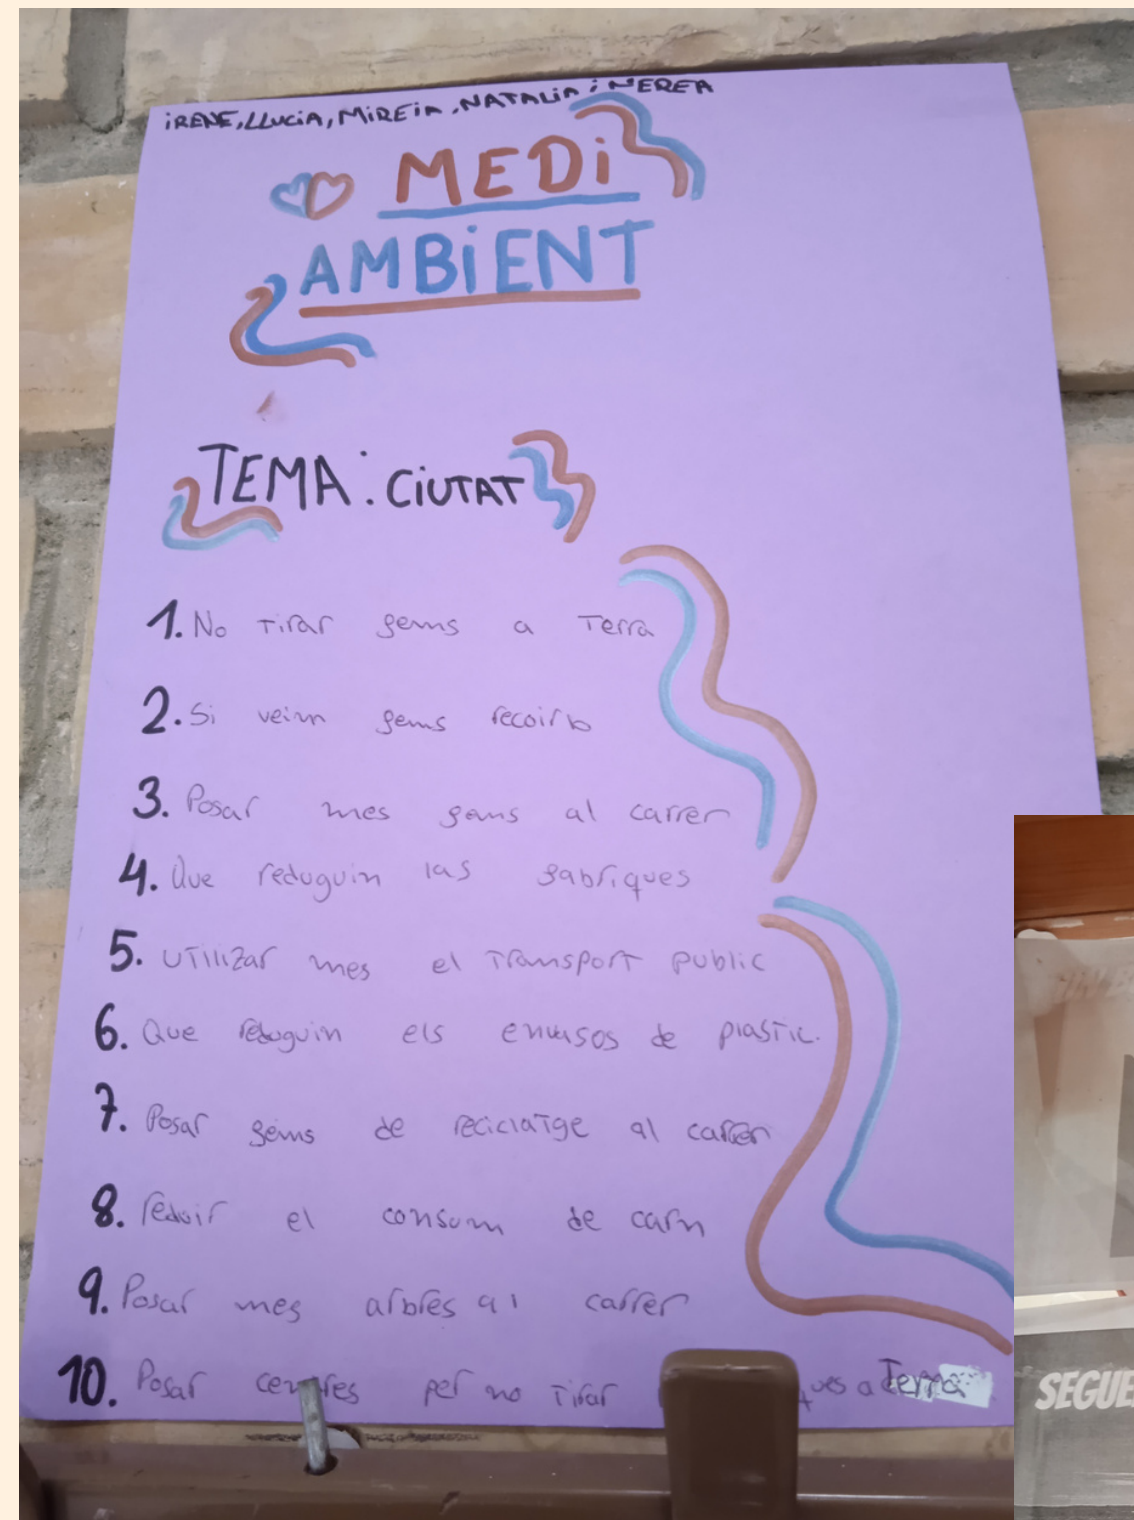 IRENE, LLUCIA, MIREIA, NATALIA i NEREA
MEDI
AMBIENT
TEMA: CIUTAT
1. No tirar fems a terra
2. Si veim fems recoirlo
3. Posar mes fems al carrer
4. Que reduguin las fabriques
5. utilizar mes el transport public
6. Que reduguin els envasos de plastic.
7. Posar fems de reciclatge al carrer
8. reduir el consum de carn
9. Posar mes arbres al carrer
10. Posar cendres per no tirar ues a Terra
SEGUE